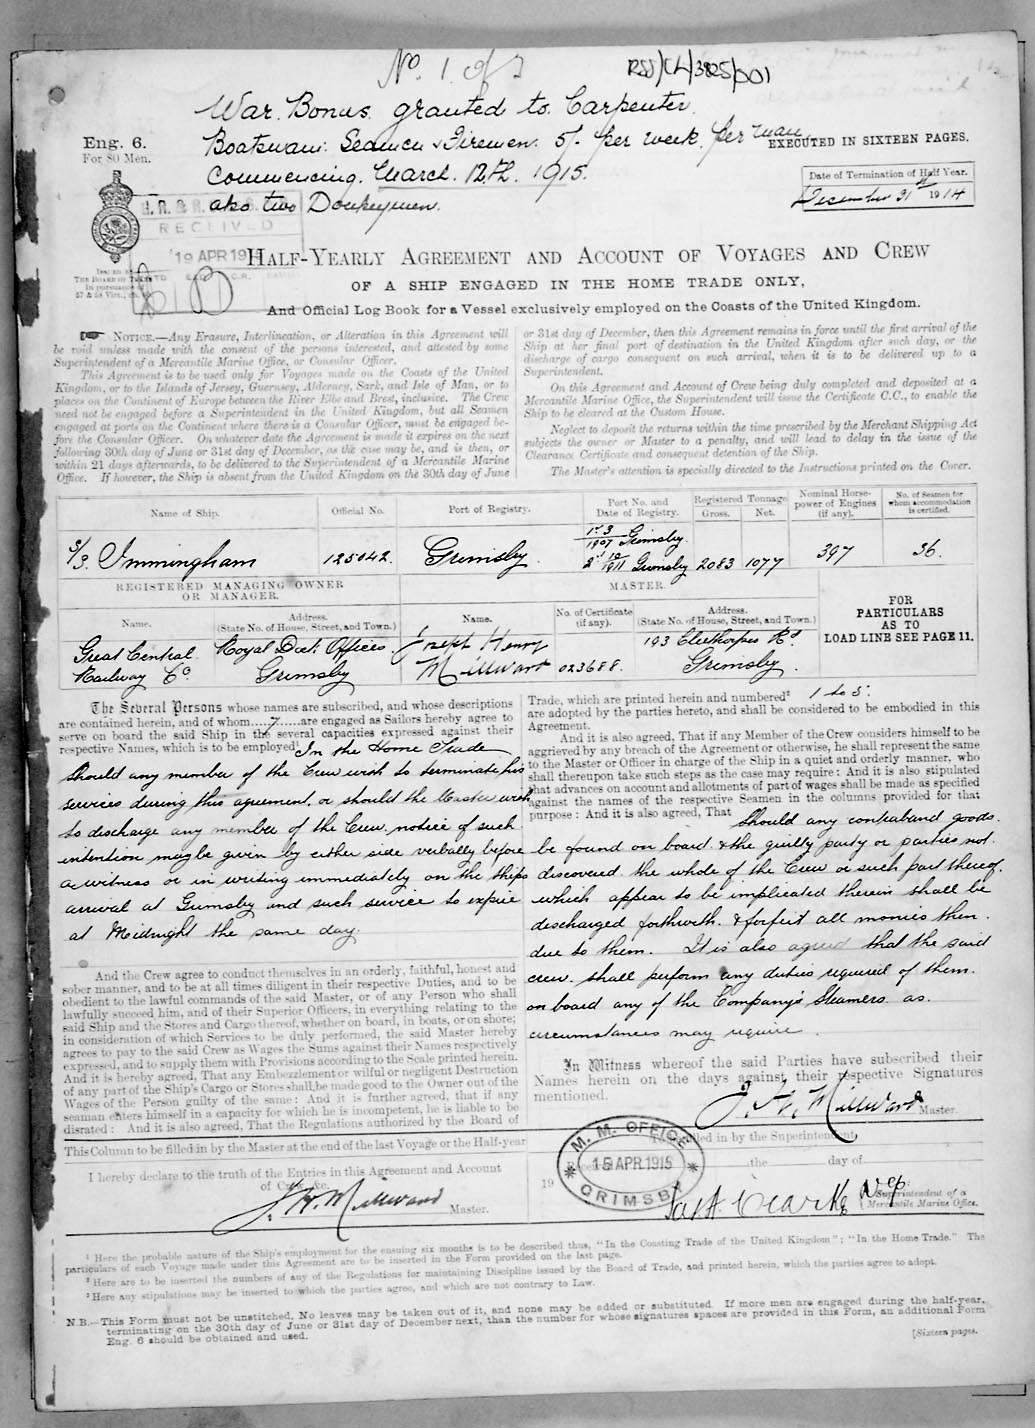 No. 1 of
RSS/CL/3825/001
War Bonus granted to Carpenter
Boatswain: Seamen & Firemen. 5/- per week per man
Commencing. March. 12th. 1915.
also two Donkeymen.
Eng. 6.
For 80 Men.
EXECUTED IN SIXTEEN PAGES.
Date of Termination of Half Year.
December 31st 1914
RECEIVED
19 APR 19
HALF-YEARLY AGREEMENT AND ACCOUNT OF VOYAGES AND CREW
OF A SHIP ENGAGED IN THE HOME TRADE ONLY,
And Official Log Book for a Vessel exclusively employed on the Coasts of the United Kingdom.
NOTICE.—Any Erasure, Interlineation, or Alteration in this Agreement will
be void unless made with the consent of the persons interested, and attested by some
Superintendent of a Mercantile Marine Office, or Consular Officer.
This Agreement is to be used only for Voyages made on the Coasts of the United
Kingdom, or to the Islands of Jersey, Guernsey, Alderney, Sark, and Isle of Man, or to
places on the Continent of Europe between the River Elbe and Brest, inclusive. The Crew
need not be engaged before a Superintendent in the United Kingdom, but all Seamen
engaged at ports on the Continent where there is a Consular Officer, must be engaged be-
fore the Consular Officer. On whatever date the Agreement is made it expires on the next
following 30th day of June or 31st day of December, as the case may be, and is then, or
within 21 days afterwards, to be delivered to the Superintendent of a Mercantile Marine
Office. If however, the Ship is absent from the United Kingdom on the 30th day of June
or 31st day of December, then this Agreement remains in force until the first arrival of the
Ship at her final port of destination in the United Kingdom after such day, or the
discharge of cargo consequent on such arrival, when it is to be delivered up to a
Superintendent.
On this Agreement and Account of Crew being duly completed and deposited at a
Mercantile Marine Office, the Superintendent will issue the Certificate C.C., to enable the
Ship to be cleared at the Custom House.
Neglect to deposit the returns within the time prescribed by the Merchant Shipping Act
subjects the owner or Master to a penalty, and will lead to delay in the issue of the
Clearance Certificate and consequent detention of the Ship.
The Master's attention is specially directed to the Instructions printed on the Cover.
Name of Ship. Official No. Port of Registry. Port No. and Date of Registry. Registered Tonnage Gross. Net. Nominal Horse-power of Engines (if any). No. of Seamen for whom accommodation is certified.
S/S. Immingham 125042. Grimsby. 1st 3/1907 Grimsby. 2nd 10/1911 Grimsby 2083 1077 397 36.
REGISTERED MANAGING OWNER
OR MANAGER.
MASTER.
Name. Address. (State No. of House, Street, and Town.) Name. No. of Certificate (if any). Address. (State No. of House, Street, and Town.)
Great Central Railway Co. Royal Dock Offices Grimsby Joseph Henry Millward 023688. 193 Cleethorpes Rd. Grimsby.
FOR
PARTICULARS
AS TO
LOAD LINE SEE PAGE 11.
The Several Persons whose names are subscribed, and whose descriptions
are contained herein, and of whom....7....are engaged as Sailors hereby agree to
serve on board the said Ship in the several capacities expressed against their
respective Names, which is to be employed¹ In the Home Trade
Should any member of the Crew wish to terminate his
services during this agreement, or should the Master wish
to discharge any member of the Crew, notice of such
intention may be given by either side verbally before
a witness or in writing immediately on the ships
arrival at Grimsby and such service to expire
at Midnight the same day.
And the Crew agree to conduct themselves in an orderly, faithful, honest and
sober manner, and to be at all times diligent in their respective Duties, and to be
obedient to the lawful commands of the said Master, or of any Person who shall
lawfully succeed him, and of their Superior Officers, in everything relating to the
said Ship and the Stores and Cargo thereof, whether on board, in boats, or on shore;
in consideration of which Services to be duly performed, the said Master hereby
agrees to pay to the said Crew as Wages the Sums against their Names respectively
expressed, and to supply them with Provisions according to the Scale printed herein.
And it is hereby agreed, That any Embezzlement or wilful or negligent Destruction
of any part of the Ship's Cargo or Stores shall be made good to the Owner out of the
Wages of the Person guilty of the same: And it is further agreed, that if any
seaman enters himself in a capacity for which he is incompetent, he is liable to be
disrated: And it is also agreed, That the Regulations authorized by the Board of
Trade, which are printed herein and numbered² 1 to 5.
are adopted by the parties hereto, and shall be considered to be embodied in this
Agreement.
And it is also agreed, That if any Member of the Crew considers himself to be
aggrieved by any breach of the Agreement or otherwise, he shall represent the same
to the Master or Officer in charge of the Ship in a quiet and orderly manner, who
shall thereupon take such steps as the case may require: And it is also stipulated
that advances on account and allotments of part of wages shall be made as specified
against the names of the respective Seamen in the columns provided for that
purpose: And it is also agreed, That Should any contraband goods.
be found on board. & the guilty party or parties not
discovered the whole of the Crew or such part thereof.
which appear to be implicated therein shall be
discharged forthwith. & forfeit all monies then.
due to them. It is also agreed that the said
crew. shall perform any duties required of them.
on board any of the Company's Steamers as.
circumstances may require.
In Witness whereof the said Parties have subscribed their
Names herein on the days against their respective Signatures
mentioned.
J. H. Millward Master.
This Column to be filled in by the Master at the end of the last Voyage or the Half-year
I hereby declare to the truth of the Entries in this Agreement and Account
of Crew, &c.
J. H. Millward Master.
filled in by the Superintendent
M. M. OFFICE
15 APR 1915
GRIMSBY
the day of
19
Dep.
Superintendent of a
Mercantile Marine Office.
¹ Here the probable nature of the Ship's employment for the ensuing six months is to be described thus, "In the Coasting Trade of the United Kingdom"; "In the Home Trade." The
particulars of each Voyage made under this Agreement are to be inserted in the Form provided on the last page.
² Here are to be inserted the numbers of any of the Regulations for maintaining Discipline issued by the Board of Trade, and printed herein, which the parties agree to adopt.
³ Here any stipulations may be inserted to which the parties agree, and which are not contrary to Law.
N.B.—This Form must not be unstitched. No leaves may be taken out of it, and none may be added or substituted. If more men are engaged during the half-year,
terminating on the 30th day of June or 31st day of December next, than the number for whose signatures spaces are provided in this Form, an additional Form
Eng. 6 should be obtained and used.
[Sixteen pages.